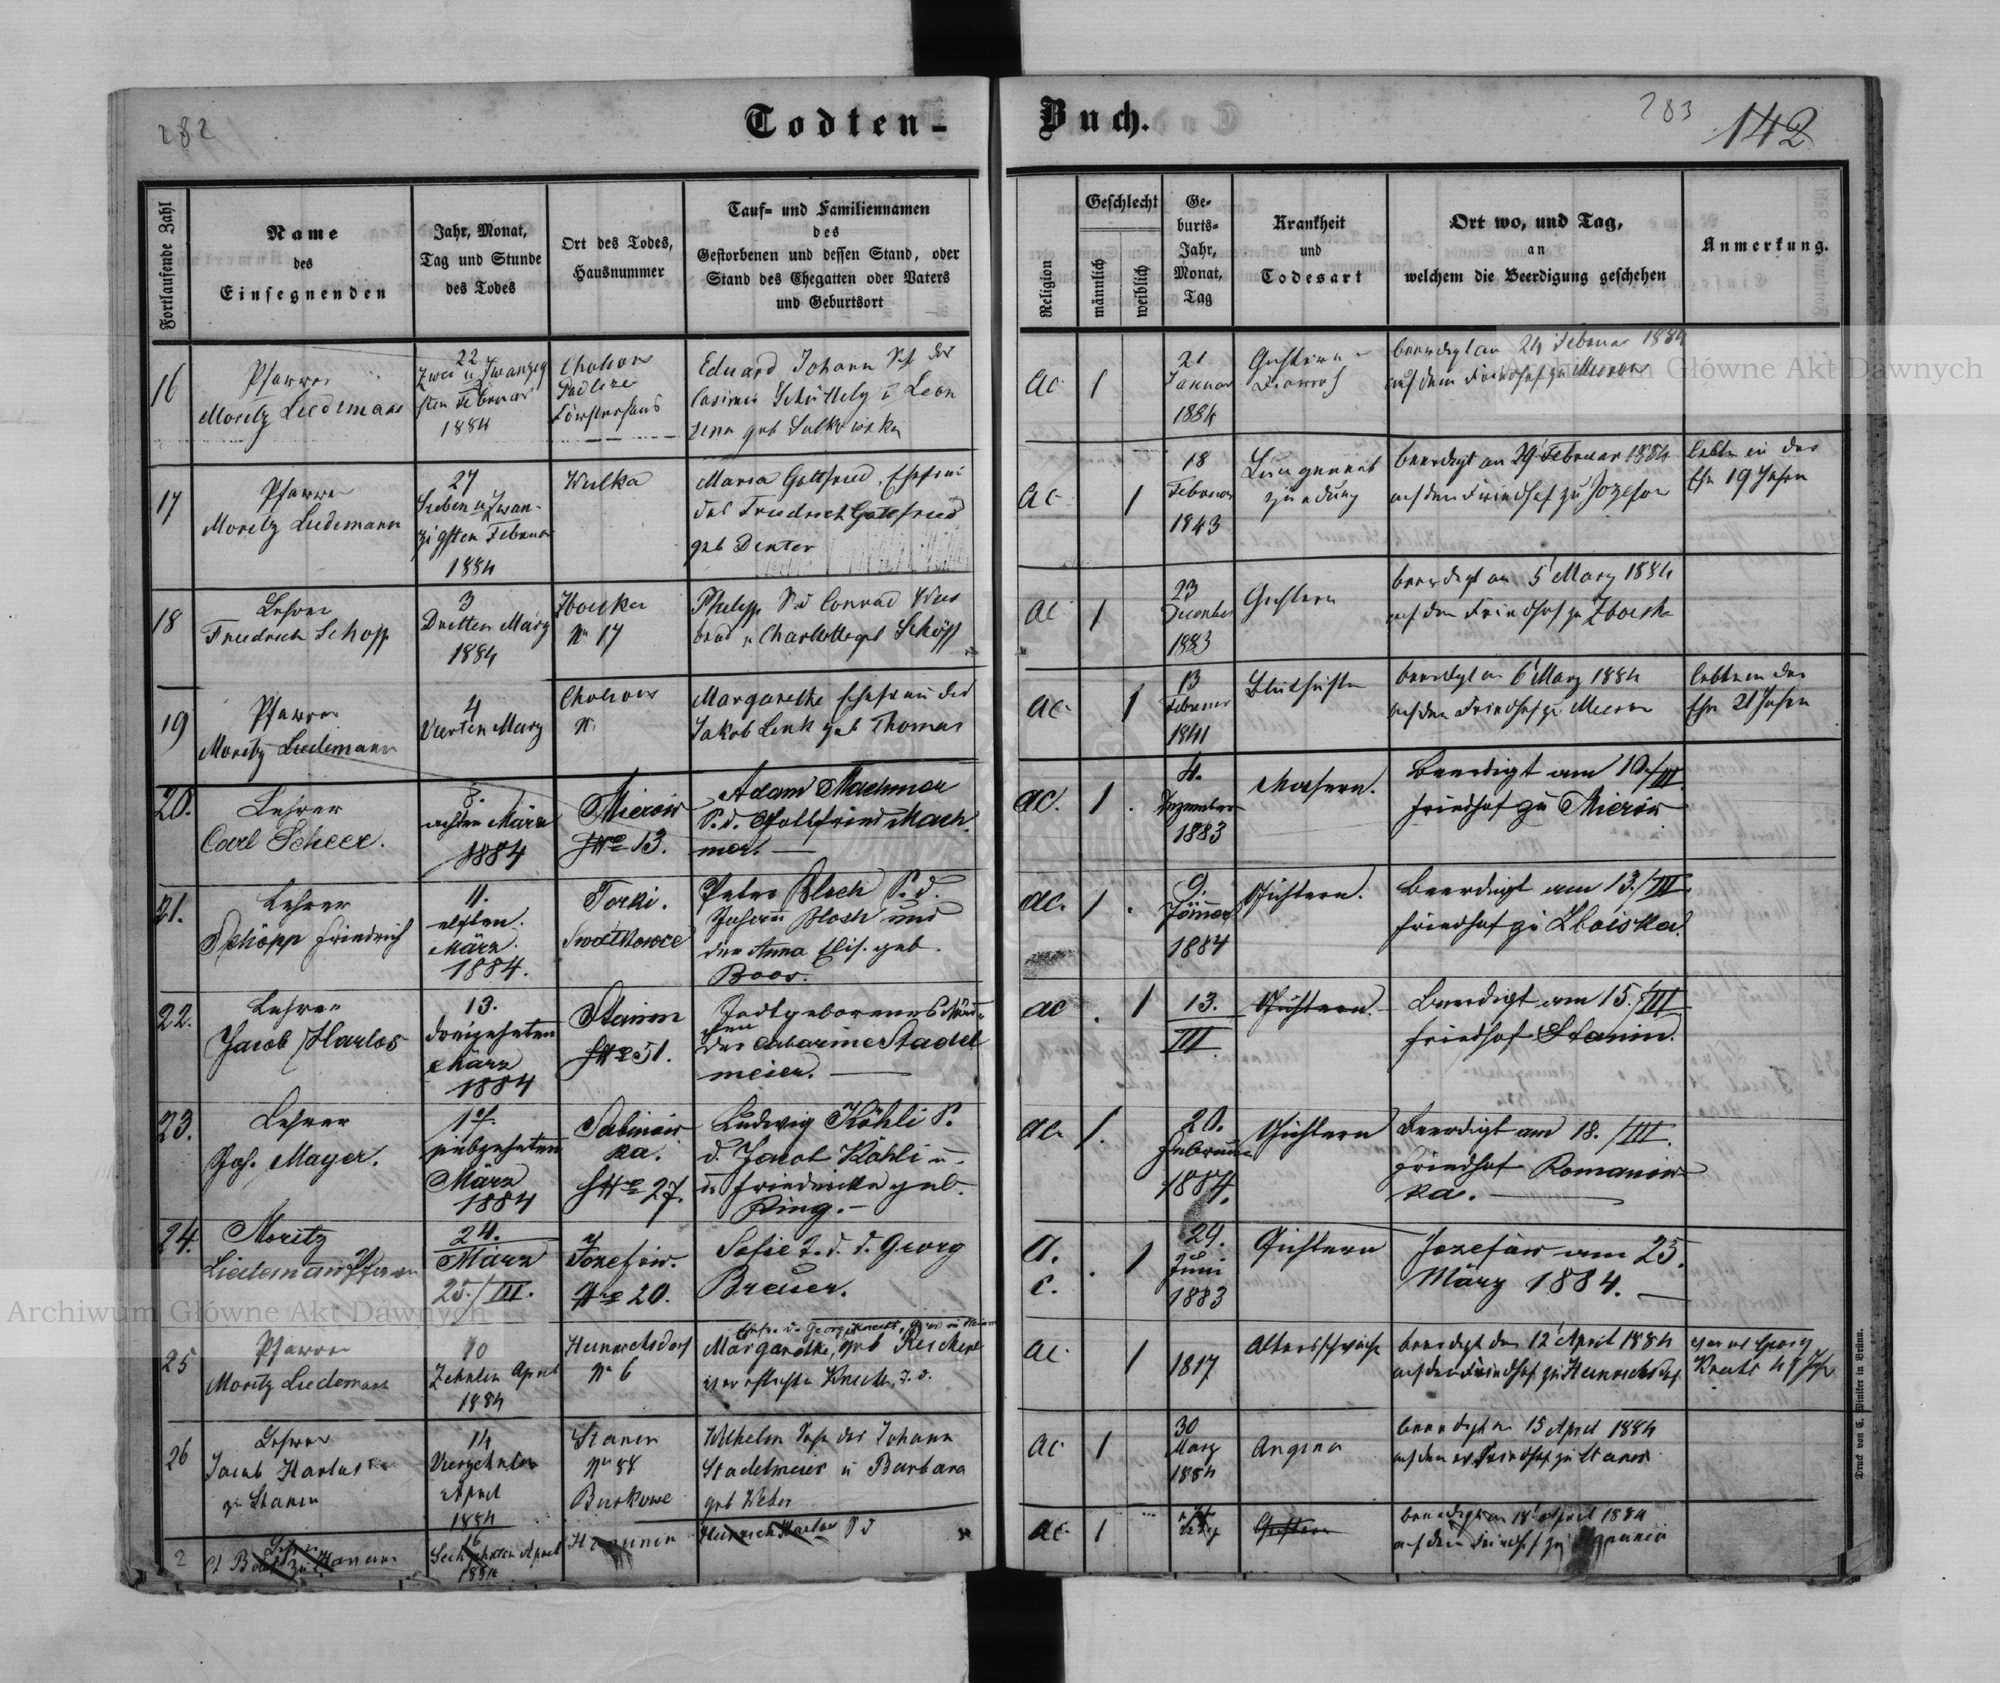 282
Todten-
Buch.
283
142
Fortlaufende Zahl
Name
des
Einsegnenden
Jahr, Monat,
Tag und Stunde
des Todes
Ort des Todes,
Hausnummer
Tauf- und Familiennamen
des
Gestorbenen und dessen Stand, oder
Stand des Ehegatten oder Vaters
und Geburtsort
Religion
Geschlecht
männlich
weiblich
Ge-
burts-
Jahr,
Monat,
Tag
Krankheit
und
Todesart
Ort wo, und Tag,
an
welchem die Beerdigung geschehen
Anmerkung.
16
Pfarrer
Moritz Liedemann
22
Zwei u Zwanzig
sten Februar
1884
Försterhaus
Eduard Johann
geb
ac
1
21
Januar
1884
beerdigt am 24 Februar 1884
auf dem Friedhof zu Mierow
17
Pfarrer
Moritz Liedemann
27
Sieben u Zwan-
zigsten Februar
1884
Wulka
Maria Gottfried, Ehefrau
des Friedrich Gottfried
geb Denter
ac
1
18
Februar
1843
Lungenent
zündung
beerdigt am 29 Februar 1884
auf dem Friedhof zu Josefow
lebte in der
Ehe 19 Jahre
18
Lehrer
Friedrich Schopp
3
Dritten März
1884
Zboiska
Nr 17
Philipp S d Conrad
u Charlotte geb Schöpp
ac
1
23
December
1883
Gichtern
beerdigt am 5 März 1884
auf dem Friedhof zu Zboiska
19
Pfarrer
Moritz Liedemann
4
Vierten März
Cholojow
Nr
Margarethe Ehefrau des
Jakob Lenk geb Thomas
ac
1
13
Februar
1841
Bluthusten
beerdigt am 6 März 1884
auf dem Friedhof zu Mierow
lebte in der
Ehe 21 Jahre
20.
Lehrer
Carl Scheer.
8.
achten März
1884
Mierow
No 13.
Adam Machmer
S. d. Gottfried Mach-
mer.
ac.
1.
4.
Dezember
1883
Masern.
Beerdigt am 10./III.
Friedhof zu Mierow
21.
Lehrer
Schöpp Friedrich
11.
elften.
März.
1884.
Torki.
Peter Bloch S. d.
Johann Bloch und
der Anna Elis. geb.
Boos.
ac.
1.
9.
Jänner
1884
Gichtern.
Beerdigt am 13./III
Friedhof zu Zboiska.
22.
Lehrer
Jacob Harlos
13.
dreizehnten
März
1884
Stanin
No 51.
Todtgeborenes Mäd-
chen
der Catharine Stadel
meier.
ac
1
13.
III.
Gichtern.
Beerdigt am 15./III
Friedhof Stanin.
23.
Lehrer
Joh. Mayer.
17.
siebzehnten
März
1884
Sabinow
ka.
No 27.
Ludwig Köhli S.
d. Jacob Köhli u.
d. Friedericke geb.
Ring.
ac.
1.
20.
Februar
1884.
Gichtern
Beerdigt am 18./III.
Friedhof Romanow
ka.
24.
Moritz
Liedemann Pfarrer
24.
März
25./III.
Jozefow.
No 20.
Sofie T. d. d. Georg
Breuer.
a.
c.
1
29.
Juni
1883
Gichtern
Jozefow am 25.
März 1884.
25
Pfarrer
Moritz Liedemann
10
Zehnten April
1884
Heinrichsdorf
Nr 6
Margarethe, geb Reichert
ac
1
1817
Altersschwäche
beerdigt den 12 April 1884
auf dem Friedhof zu Heinrichsdorf
26
Lehrer
Jacob Harlos
zu Stanin
14
Vierzehnten
April
1884
Stanin
Nr 88
Wilhelm Sohn des Johann
Stadelmeier u Barbara
geb Weber
ac
1
30
März
1884
Angina
beerdigt am 15 April 1884
auf dem ev Friedhof zu Stanin
2
Lehrer
16
Sechzehnten April
1884
Hanunin
Heinrich Harlos S d
ac
1
Gichtern
beerdigt am 18 April 1884
auf dem Friedhof zu
Druck von C. Winiker in Brünn.
Archiwum Główne Akt Dawnych
Archiwum Główne Akt Dawnych